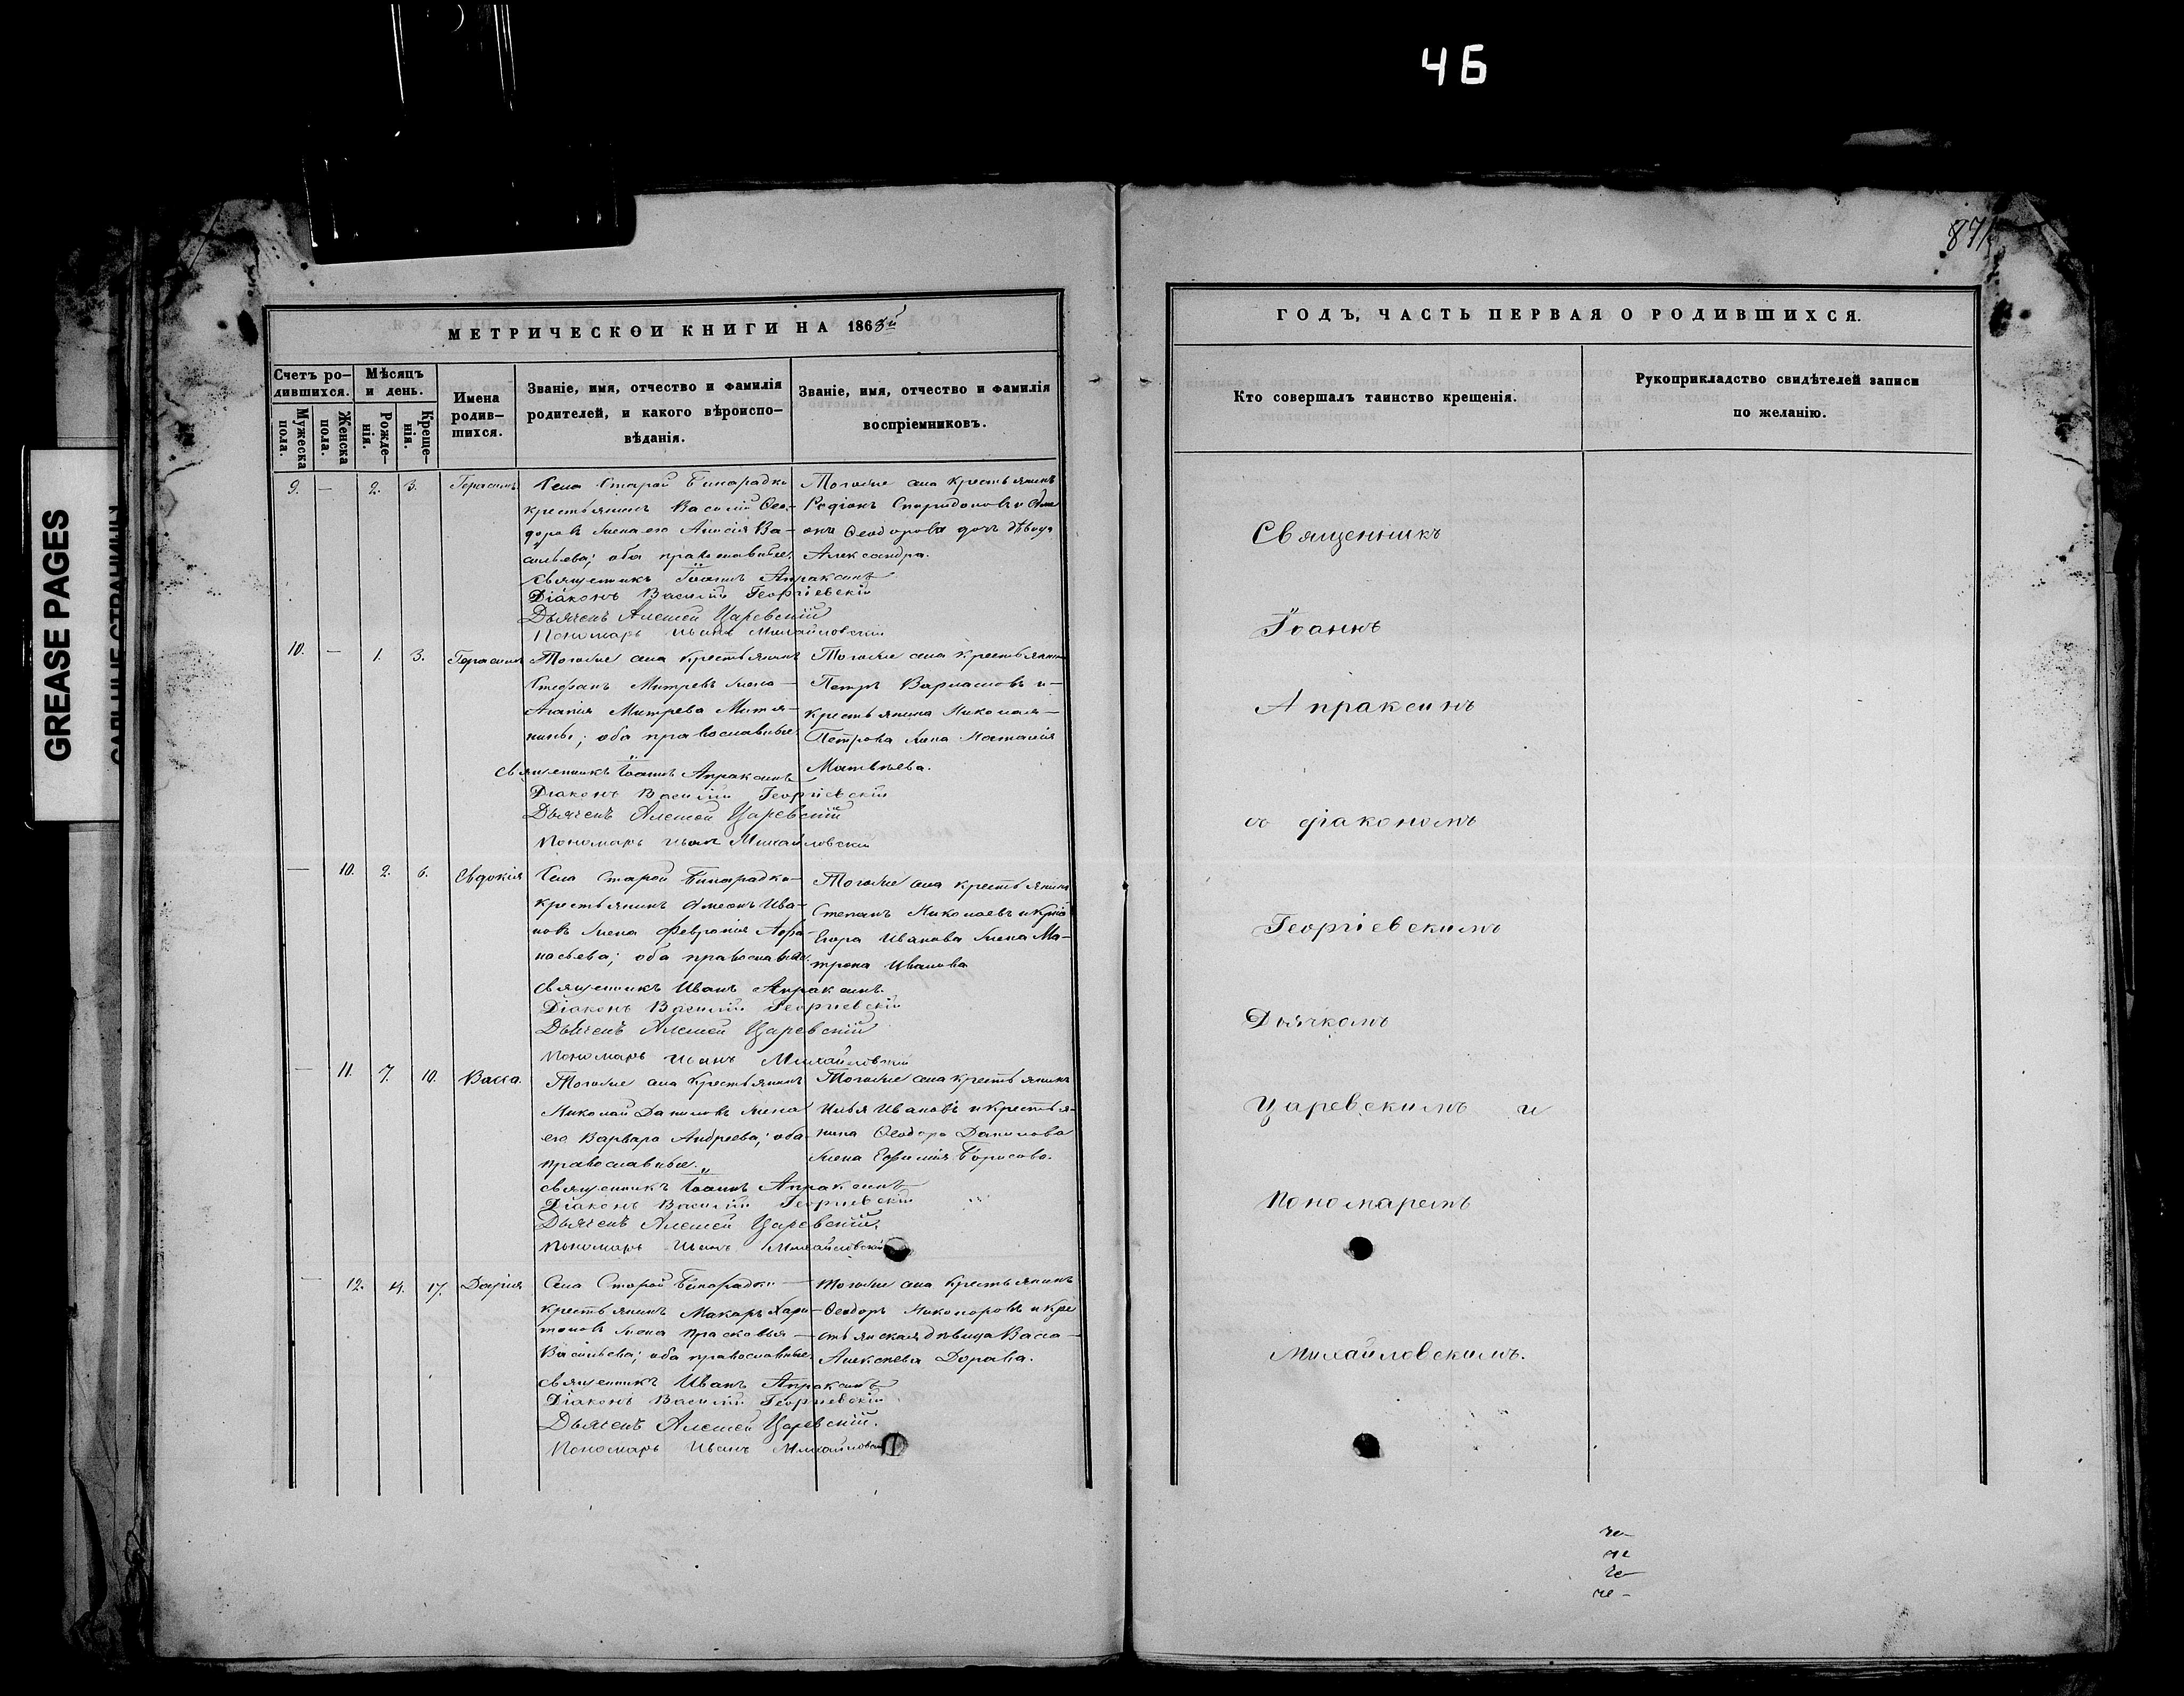 46
87
GREASE PAGES
МЕТРИЧЕСКОЙ КНИГИ НА 1865й
Счетъ ро-
дившихся.
Мѣсяцъ
и день.
Мужеска
пола.
Женска
пола.
Рожде-
нія.
Креще-
нія.
Имена
родив-
шихся.
Званіе, имя, отчество и фамилія
родителей, и какого вѣроиспо-
вѣданія.
Званіе, имя, отчество и фамилія
воспріемниковъ.
9. — 2. 3. Герасимъ
Села Старой Бинарадки
крестьянинъ Василій Ѳео-
доровъ жена его Анисія Ва-
сильева; оба православные.
Тогоже села крестьянинъ
Родіонъ Спиридоновъ и
Ѳеодорова дочь дѣвица
Александра.
Священникъ Іоаннъ Апраксинъ
Діаконъ Василій Георгіевскій
Дьячекъ Алексей Царевскій
Пономарь Иванъ Михайловскій
10. — 1. 3. Герасимъ
Тогоже села крестьянинъ
Стефанъ Митревъ жена
Агапія Митрева
оба православные
Тогоже села крестьянинъ
Петръ Варламовъ и
крестьянина Николая
Петрова жена Наталія
Матвѣева.
Священникъ Іоаннъ Апраксинъ
Діаконъ Василій Георгіевскій
Дьячекъ Алексей Царевскій
Пономарь Иванъ Михайловскій
— 10. 2. 6. Евдокія
Села Старой Бинарадки
крестьянинъ Симеонъ Ива-
новъ жена Феврония Афа-
насьева; оба православные.
Тогоже села крестьянинъ
Степанъ Николаевъ и
Егора Иванова жена Ма-
трона Иванова
Священникъ Иванъ Апраксинъ.
Діаконъ Василій Георгіевскій
Дьячекъ Алексей Царевскій
Пономарь Иванъ Михайловскій
— 11. 7. 10. Васса.
Тогоже села крестьянинъ
Николай Даниловъ жена
его Варвара Андреева; оба
православные.
Тогоже села крестьянинъ
Илья Ивановъ и крестья-
нина Ѳеодора Данилова
жена Ефимія Борисова.
Священникъ Іоаннъ Апраксинъ
Діаконъ Василій Георгіевскій
Дьячекъ Алексей Царевскій.
Пономарь Иванъ Михайловскій
— 12. 14. 17. Дарія
Села Старой Бинарадки
крестьянинъ Макаръ Хари-
тоновъ жена Прасковья
Васильева; оба православные
Тогоже села крестьянинъ
Ѳеодоръ Никоноровъ и кре
стьянская дѣвица Васса
Алексѣева
Священникъ Иванъ Апраксинъ
Діаконъ Василій Георгіевскій
Дьячекъ Алексей Царевскій.
Пономарь Иванъ Михайловскій
ГОДЪ, ЧАСТЬ ПЕРВАЯ О РОДИВШИХСЯ.
Кто совершалъ таинство крещенія.
Рукоприкладство свидѣтелей записи
по желанію.
Священникъ
Іоаннъ
Апраксинъ
съ діакономъ
Георгіевскимъ
Дьячкомъ
Царевскимъ и
Пономаремъ
Михайловскимъ.